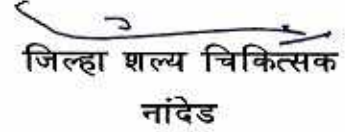 जिल्हा शल्य चिकित्सक
नांदेड